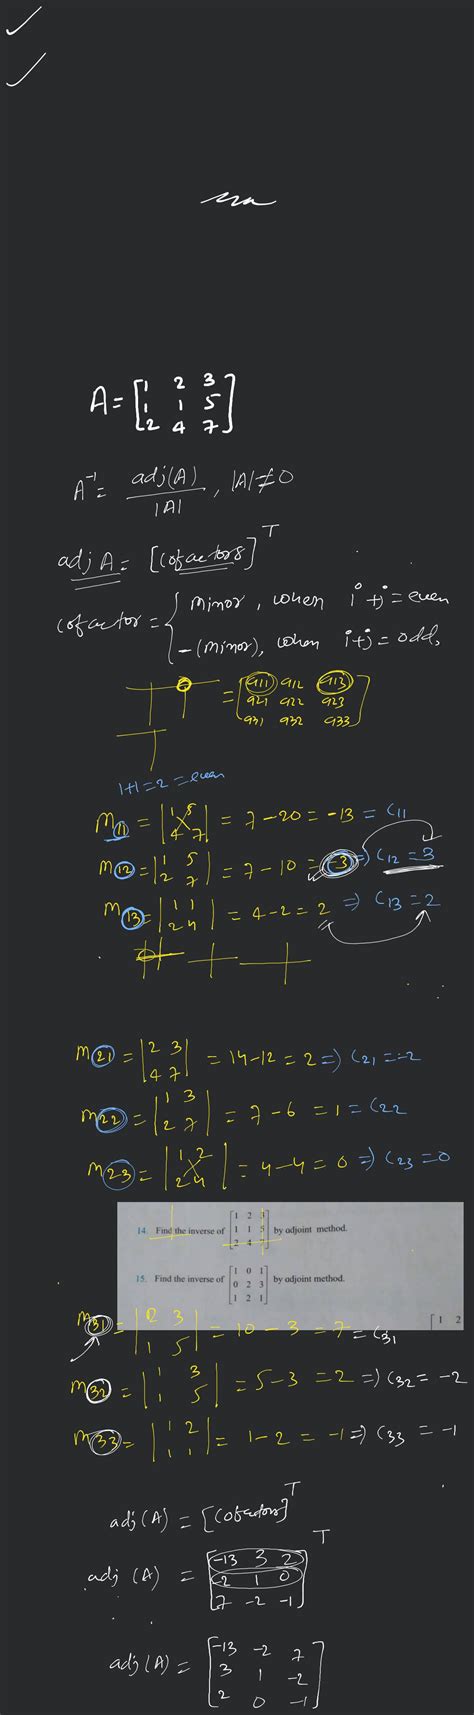 A = [1 2 3
1 1 5
2 4 7]
A⁻¹ = adj(A) / |A| , |A| ≠ 0
adj A = [cofactors]ᵀ
cofactor = { minor, when i+j = even
-(minor), when i+j = odd,
= [a11 a12 a13
a21 a22 a23
a31 a32 a33]
1+1=2 = even
M11 = |1 5
4 7| = 7-20 = -13 = C11
M12 = |1 5
2 7| = 7-10 = -3 => C12 = 3
M13 = |1 1
2 4| = 4-2 = 2 => C13 = 2
M21 = |2 3
4 7| = 14-12 = 2 => C21 = -2
M22 = |1 3
2 7| = 7-6 = 1 = C22
M23 = |1 2
2 4| = 4-4 = 0 => C23 = 0
14. Find the inverse of [1 2 3
1 1 5
2 4 7] by adjoint method.
15. Find the inverse of [1 0 1
0 2 3
1 2 1] by adjoint method.
[1 2
M31 = |2 3
1 5| = 10-3 = 7 = C31
M32 = |1 3
1 5| = 5-3 = 2 => C32 = -2
M33 = |1 2
1 1| = 1-2 = -1 => C33 = -1
adj(A) = [cofactor]ᵀ
adj(A) = [-13 3 2
-2 1 0
7 -2 -1]ᵀ
adj(A) = [-13 -2 7
3 1 -2
2 0 -1]